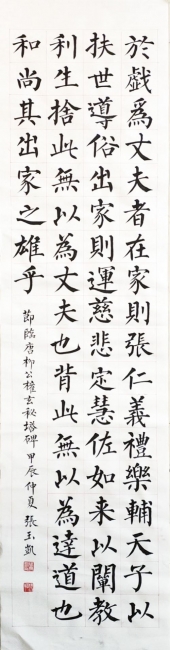 於戲為丈夫者在家則張仁義禮樂輔天子以
扶世導俗出家則運慈悲定慧佐如来以闡教
利生捨此無以為丈夫也背此無以為達道也
和尚其出家之雄乎
節臨唐柳公權玄秘塔碑甲辰仲夏張玉凱